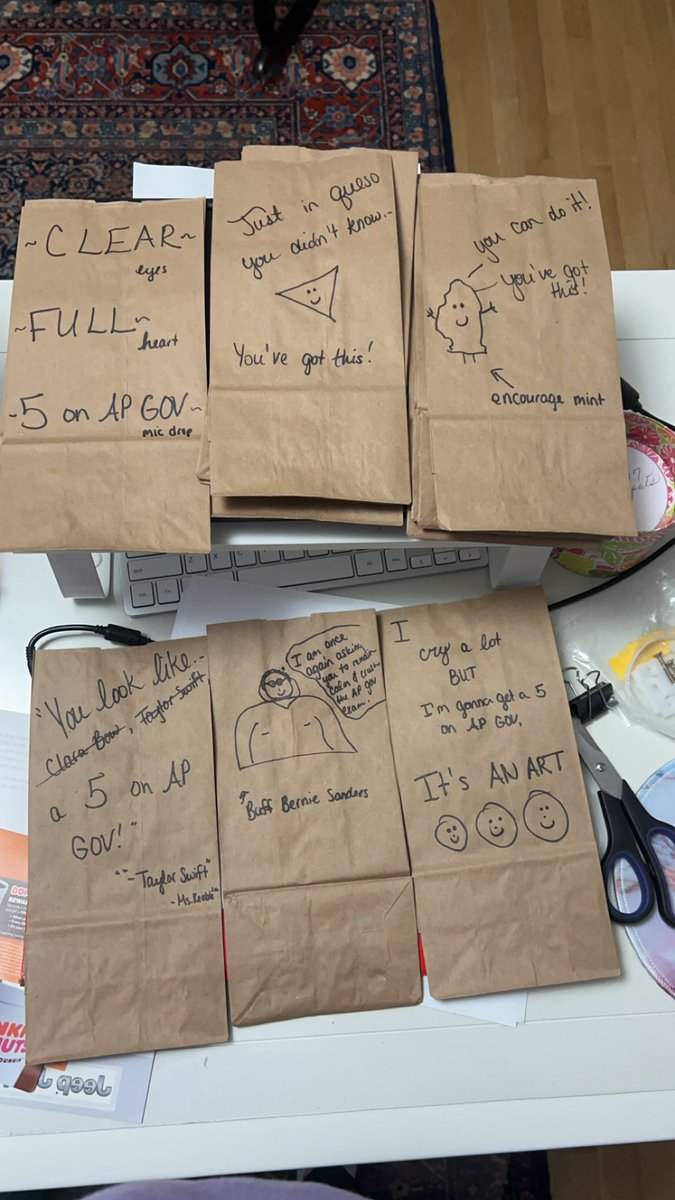 ~CLEAR~
eyes
~FULL~
heart
~5 on AP GOV~
mic drop
Just in queso
you didn't know...
You've got this!
you can do it!
you've got
this!
encourage mint
"You look like...
Clara Bow, Taylor Swift
a 5 on AP
GOV!"
"-Taylor Swift"
I am once
again asking
you to remain
calm & crush
the AP gov
exam.
Buff Bernie Sanders
I
cry a lot
BUT
I'm gonna get a 5
on AP GOV,
It's AN ART
BEWARE
DUNKIN'
Jeep